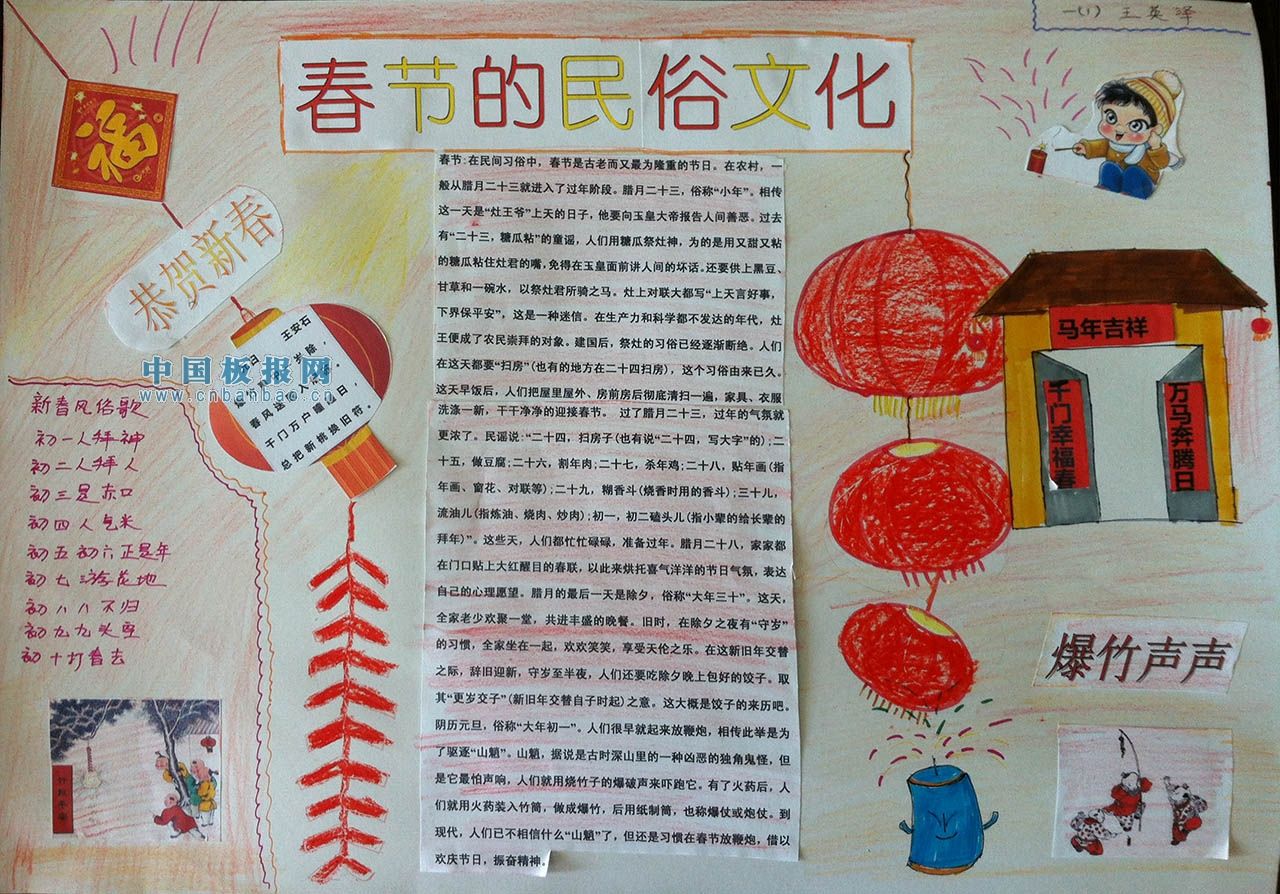 一(1) 王英泽
春节的民俗文化
福
恭贺新春
王安石
春风送
千门万户曈曈日，
总把新桃换旧符。
中国板报网
www.cnbanbao.cn
新春风俗歌
初一人拜神
初二人拜人
初三是赤口
初四人乞米
初五初六正是年
初七游花地
初八八不归
初九九头空
初十打春去
春节:在民间习俗中，春节是古老而又最为隆重的节日。在农村，一
般从腊月二十三就进入了过年阶段。腊月二十三，俗称“小年”。相传
这一天是“灶王爷”上天的日子，他要向玉皇大帝报告人间善恶。过去
有“二十三，糖瓜粘”的童谣，人们用糖瓜祭灶神，为的是用又甜又粘
的糖瓜粘住灶君的嘴，免得在玉皇面前讲人间的坏话。还要供上黑豆、
甘草和一碗水，以祭灶君所骑之马。灶上对联大都写“上天言好事，
下界保平安”，这是一种迷信。在生产力和科学都不发达的年代，灶
王便成了农民崇拜的对象。建国后，祭灶的习俗已经逐渐断绝。人们
在这天都要“扫房”(也有的地方在二十四扫房)，这个习俗由来已久。
这天早饭后，人们把屋里屋外、房前房后彻底清扫一遍，家具、衣服
洗涤一新，干干净净的迎接春节。 过了腊月二十三，过年的气氛就
更浓了。民谣说:“二十四，扫房子(也有说“二十四，写大字”的);二
十五，做豆腐;二十六，割年肉;二十七，杀年鸡;二十八，贴年画(指
年画、窗花、对联等);二十九，糊香斗(烧香时用的香斗);三十儿，
流油儿(指炼油、烧肉、炒肉);初一，初二磕头儿(指小辈的给长辈的
拜年)”。这些天，人们都忙忙碌碌，准备过年。腊月二十八，家家都
在门口贴上大红醒目的春联，以此来烘托喜气洋洋的节日气氛，表达
自己的心理愿望。腊月的最后一天是除夕，俗称“大年三十”。这天，
全家老少欢聚一堂，共进丰盛的晚餐。旧时，在除夕之夜有“守岁”
的习惯，全家坐在一起，欢欢笑笑，享受天伦之乐。在这新旧年交替
之际，辞旧迎新，守岁至半夜，人们还要吃除夕晚上包好的饺子。取
其“更岁交子”(新旧年交替自子时起)之意。这大概是饺子的来历吧。
阴历元旦，俗称“大年初一”。人们很早就起来放鞭炮，相传此举是为
了驱逐“山魈”。山魈，据说是古时深山里的一种凶恶的独角鬼怪，但
是它最怕声响，人们就用烧竹子的爆破声来吓跑它。有了火药后，人
们就用火药装入竹筒，做成爆竹，后用纸制筒，也称爆仗或炮仗。到
现代，人们已不相信什么“山魈”了，但还是习惯在春节放鞭炮，借以
欢庆节日，振奋精神。
马年吉祥
千门幸福春
万马奔腾日
爆竹声声